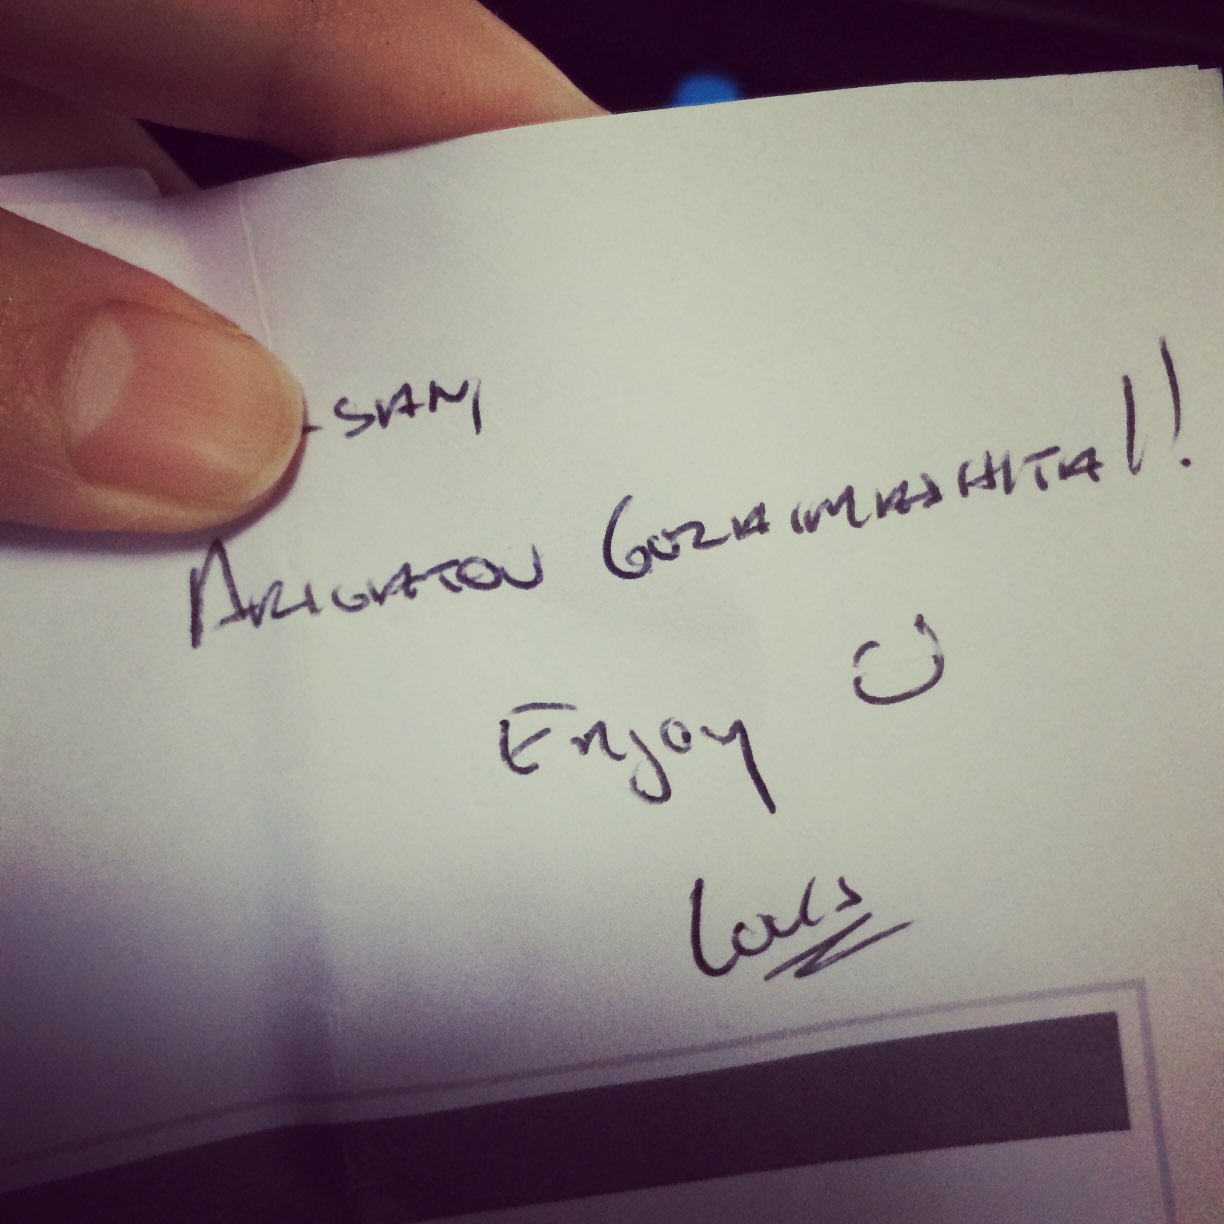 -SAN,
ARIGATOU GOZAIMASHITA!!
Enjoy